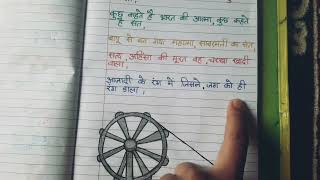 कुछ कहते है भारत की आत्मा, कुछ कहते
है संत,
बापू से बन गया महात्मा, साबरमती का संत,
सत्य, अहिंसा की मूरत वह, चरखा खादी
वाला,
आजादी के रंग में जिसने, जग को ही
रंग डाला,